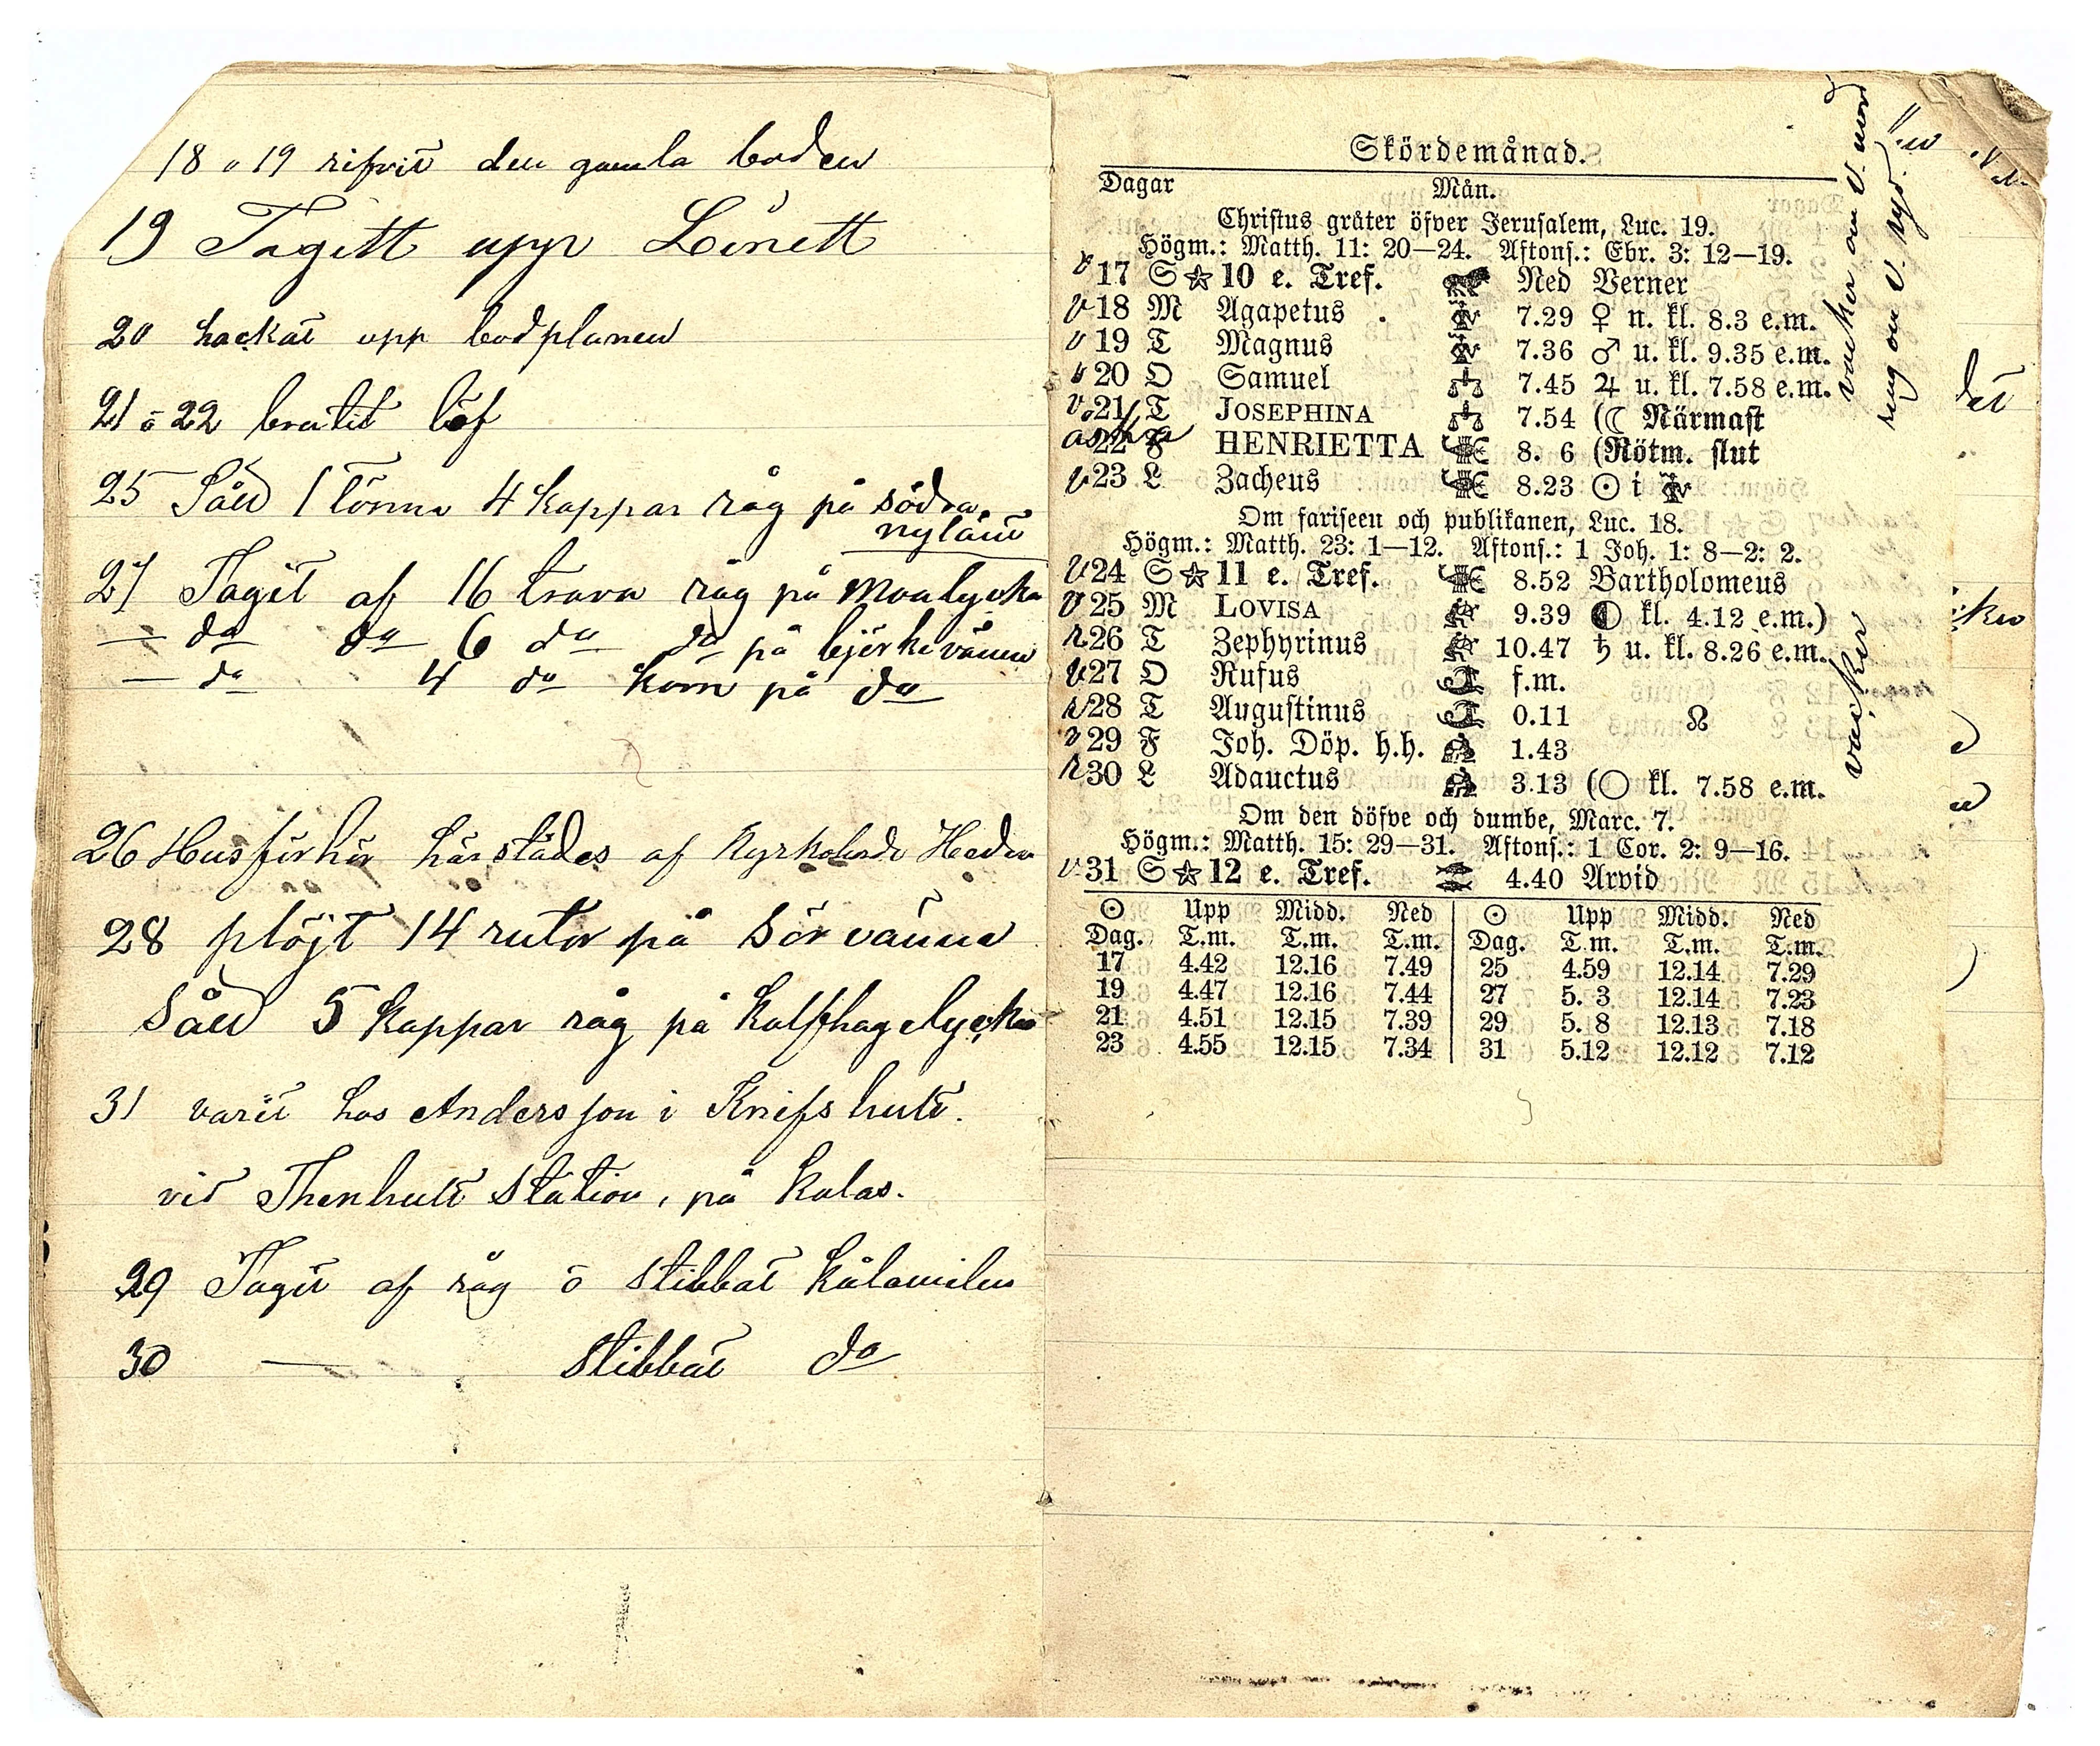 18 o 19 rifvit den gamla boden
19 Tagitt upp Linett
20 hackat upp bodplanen
21 o 22 brutit löf
25 Såd 1 tönna 4 kappar råg på södra
nylänn
27 Tagit af 16 travar råg på Moalycka
— do do 6 do do på björkevännen
— do 4 do korn på do
26 Husförhör härstädes af Kyrkoherde
28 plöjt 14 rutor på Sörvänne
Såd 5 kappar råg på Kalfhagelycka
31 varit hos Andersson i Knifshult.
vid Thenhult Station, på kalas.
29 Tagit af råg o stibbat kålamilen
30 — stibbat do
Skördemånad.
Dagar Mån.
Christus gråter öfver Jerusalem, Luc. 19.
Högm.: Matth. 11: 20—24. Aftons.: Ebr. 3: 12—19.
v 17 S☆10 e. Tref. Ned Verner
v 18 M Agapetus 7.29 ♀ n. kl. 8.3 e.m.
v 19 T Magnus 7.36 ♂ u. kl. 9.35 e.m.
v 20 O Samuel 7.45 ♃ u. kl. 7.58 e.m.
v 21 T JOSEPHINA 7.54 (☾ Närmast
22 F HENRIETTA 8. 6 (Rötm. slut
v 23 L Zacheus 8.23 ☉ i ♍
Om fariseen och publikanen, Luc. 18.
Högm.: Matth. 23: 1—12. Aftons.: 1 Joh. 1: 8—2: 2.
v 24 S☆11 e. Tref. 8.52 Bartholomeus
v 25 M LOVISA 9.39 ◐ kl. 4.12 e.m.)
r 26 T Zephyrinus 10.47 ♄ u. kl. 8.26 e.m.
v 27 O Rufus f.m.
r 28 T Augustinus 0.11 ☊
v 29 F Joh. Döp. h.h. 1.43
r 30 L Adauctus 3.13 (○ kl. 7.58 e.m.
Om den döfve och dumbe, Marc. 7.
Högm.: Matth. 15: 29—31. Aftons.: 1 Cor. 2: 9—16.
v 31 S☆12 e. Tref. 4.40 Arvid
☉ Upp Midd. Ned ☉ Upp Midd. Ned
Dag. T.m. T.m. T.m. Dag. T.m. T.m. T.m.
17 4.42 12.16 7.49 25 4.59 12.14 7.29
19 4.47 12.16 7.44 27 5. 3 12.14 7.23
21 4.51 12.15 7.39 29 5. 8 12.13 7.18
23 4.55 12.15 7.34 31 5.12 12.12 7.12
vacker